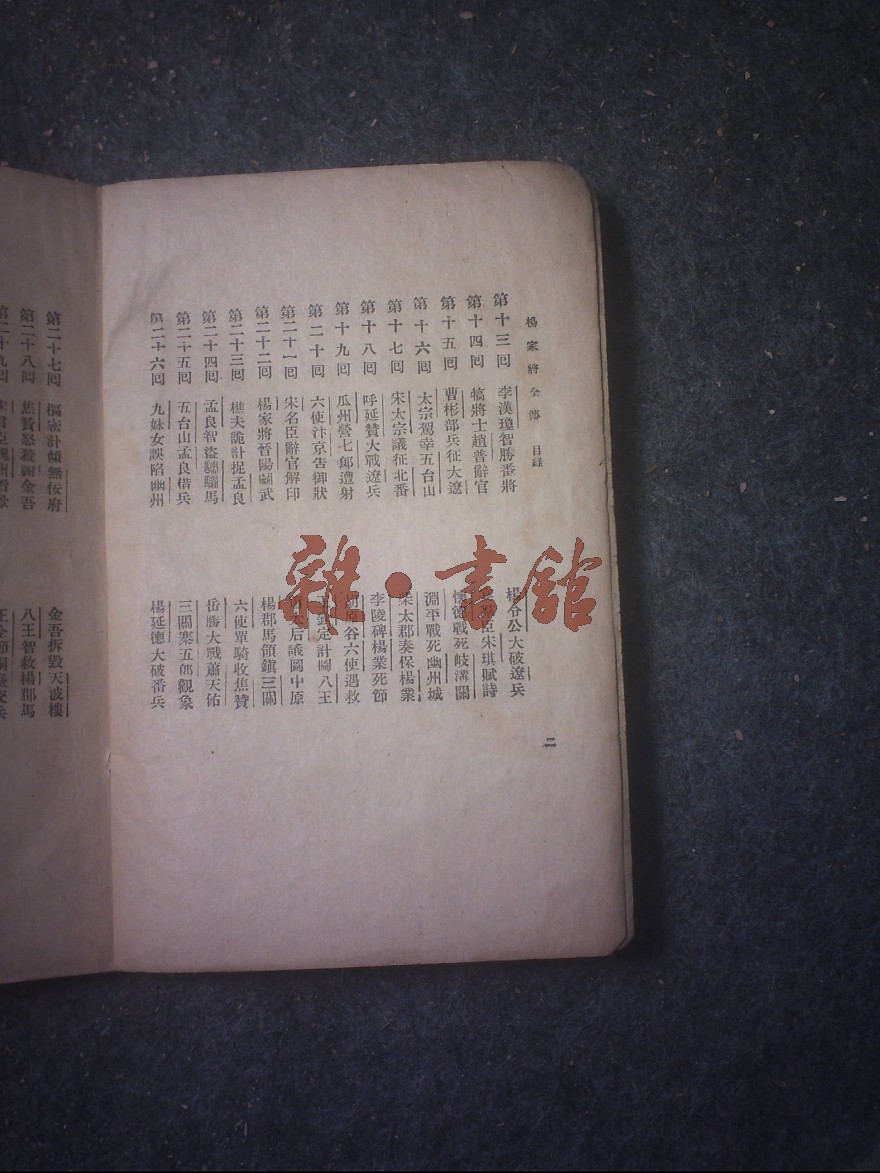 楊家將全傳 目錄 二
第十三回 李漢瓊智勝番將 楊令公大破遼兵
第十四回 犒將士趙普辭官 臣宋琪賦詩
第十五回 曹彬部兵征大遼 懷德戰死岐溝關
第十六回 太宗駕幸五台山 淵平戰死幽州城
第十七回 宋太宗議征北番 柴太郡奏保楊業
第十八回 呼延贊大戰遼兵 李陵碑楊業死節
第十九回 瓜州營七郎遭射 胡原谷六使遇救
第二十回 六使汴京告御狀 定計圖八王
第二十一回 宋名臣辭官解印 太后議圖中原
第二十二回 楊家將晉陽鬭武 楊郡馬領鎮三關
第二十三回 樵夫詭計捉孟良 六使單騎收焦贊
第二十四回 孟良智盜驌驦馬 岳勝大戰蕭天佑
第二十五回 五台山孟良借兵 三關寨五郎觀象
第二十六回 九妹女誤陷幽州 楊延德大破番兵
第二十七回 樞密計傾無佞府 金吾拆毀天波樓
第二十八回 焦贊怒殺謝金吾 八王智救楊郡馬
第二十九回
雜·書館